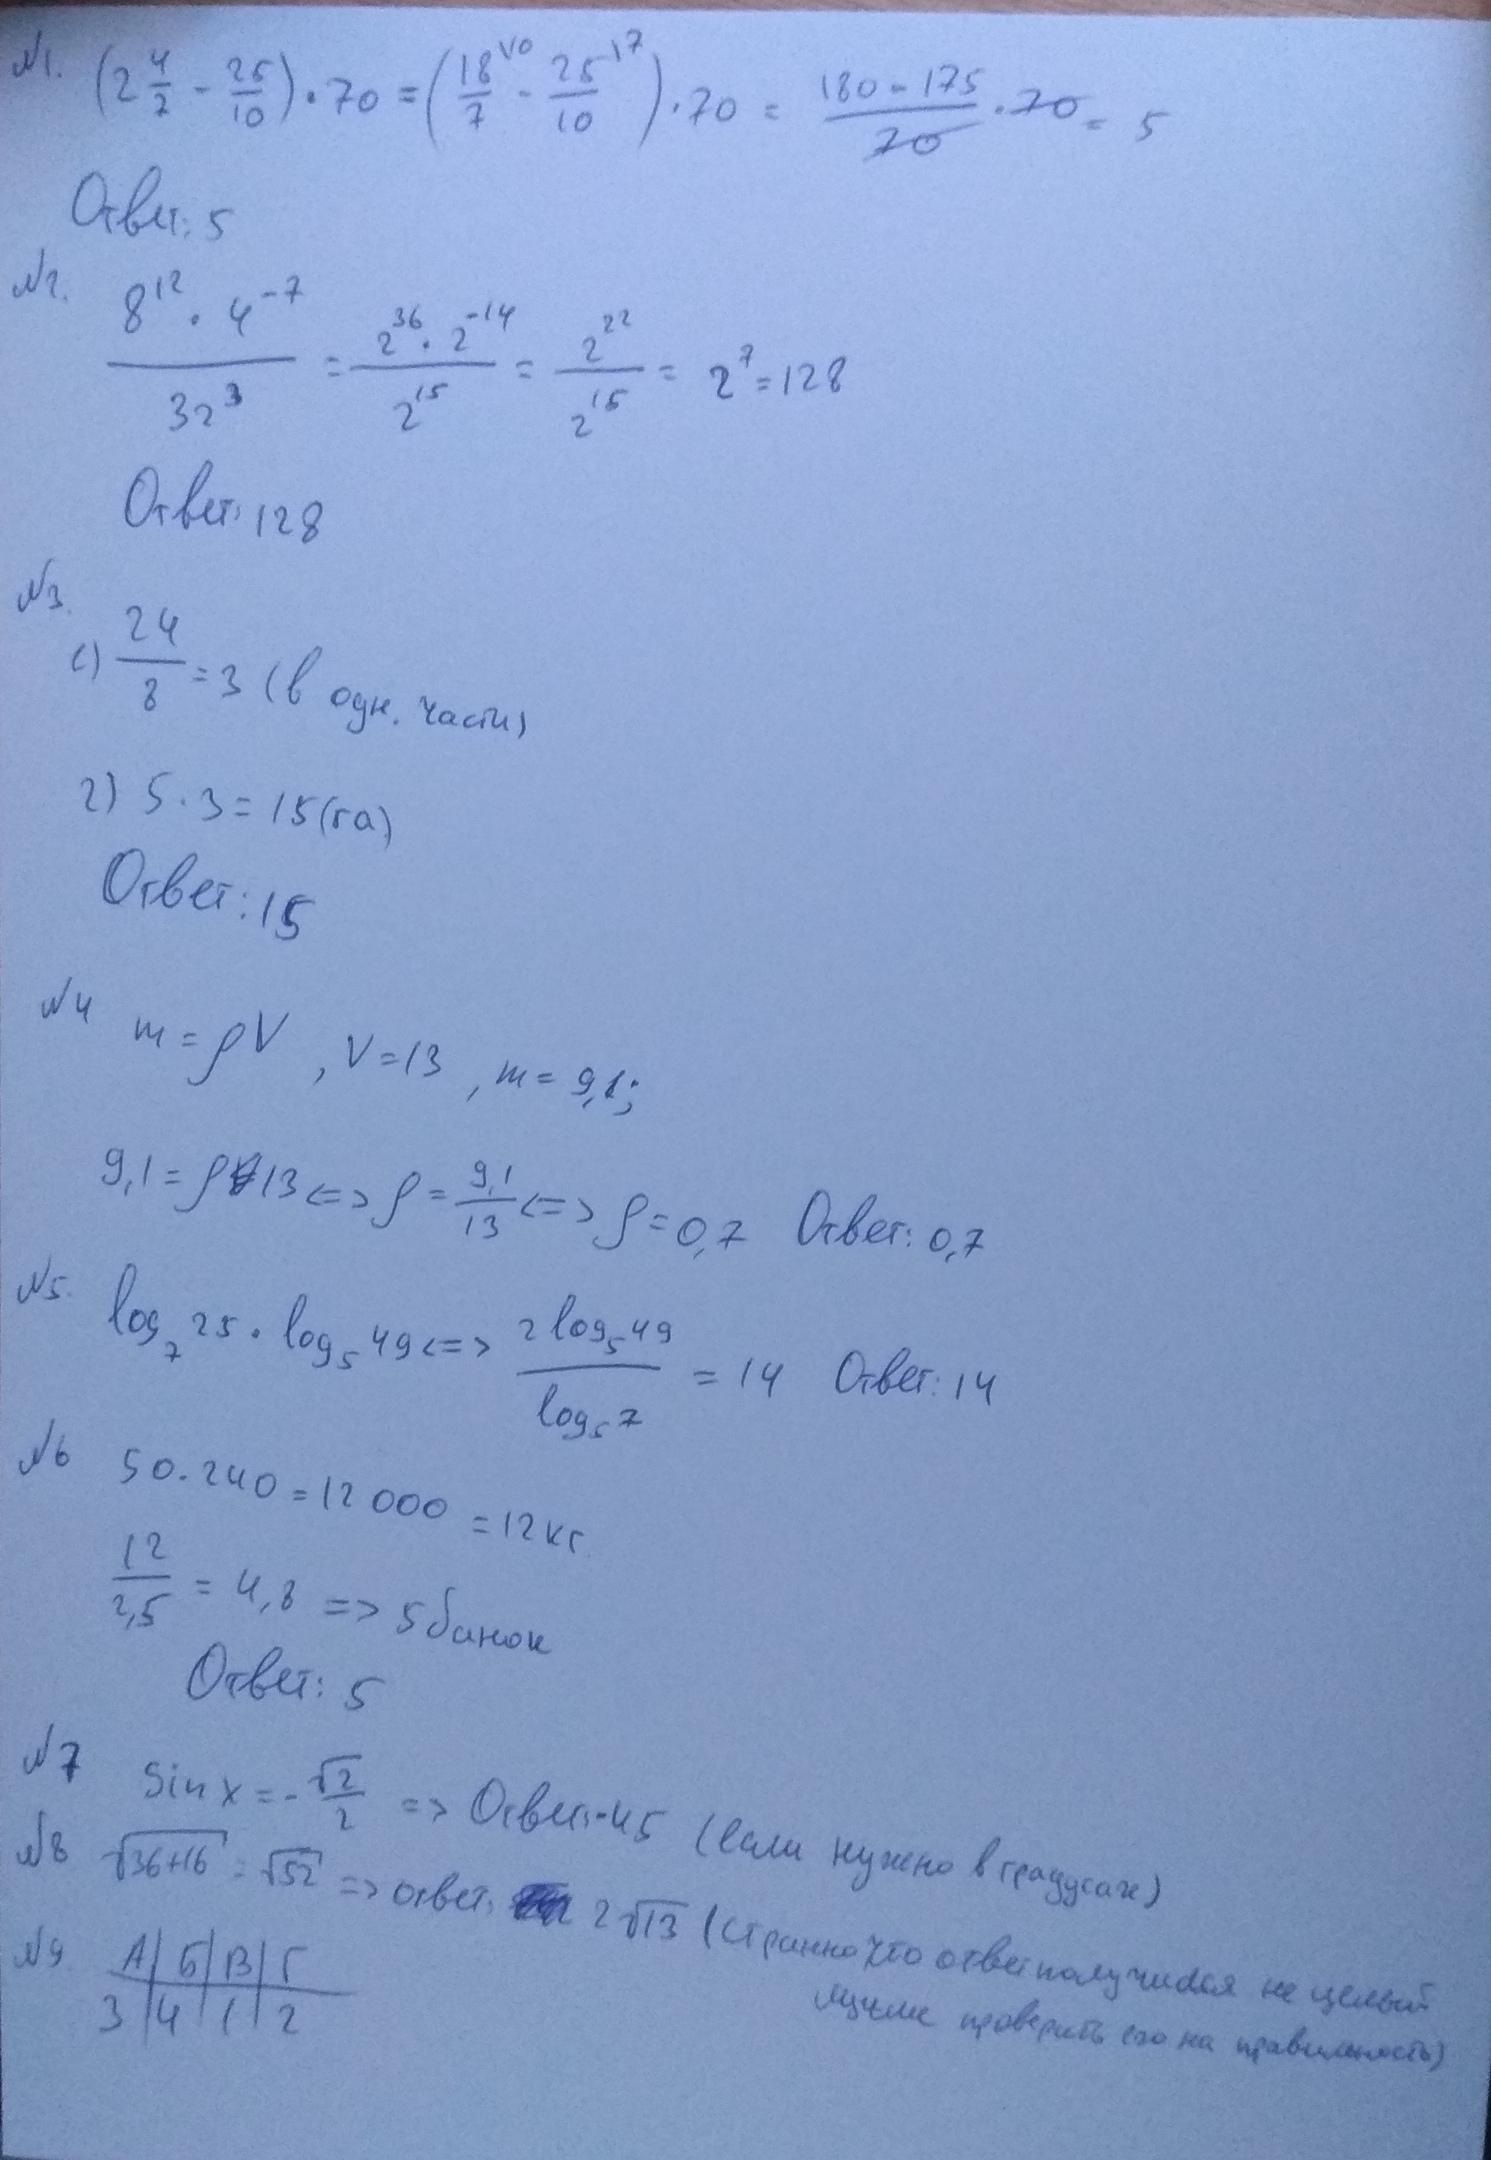 №1. (2 4/7 - 25/10) · 70 = (18/7 \10 - 25/10 \7) · 70 = (180 - 175)/70 · 70 = 5
Ответ: 5
№2. (8^12 · 4^-7)/32^3 = (2^36 · 2^-14)/2^15 = 2^22/2^15 = 2^7 = 128
Ответ: 128
№3.
1) 24/8 = 3 (в одн. части)
2) 5 · 3 = 15 (га)
Ответ: 15
№4 m = ρV, V = 13, m = 9,1;
9,1 = ρ 13 <=> ρ = 9,1/13 <=> ρ = 0,7 Ответ: 0,7
№5. log_7 25 · log_5 49 <=> (2 log_5 49)/(log_5 7) = 14 Ответ: 14
№6 50 · 240 = 12 000 = 12 кг
12/2,5 = 4,8 => 5 банок
Ответ: 5
№7 Sin x = -√2/2 => Ответ: -45 (если нужно в градусах)
№8 √36+16 = √52 => ответ: 2√13 (странно что ответ получился не целый
лучше проверить его на правильность)
№9 А | Б | В | Г
3 | 4 | 1 | 2